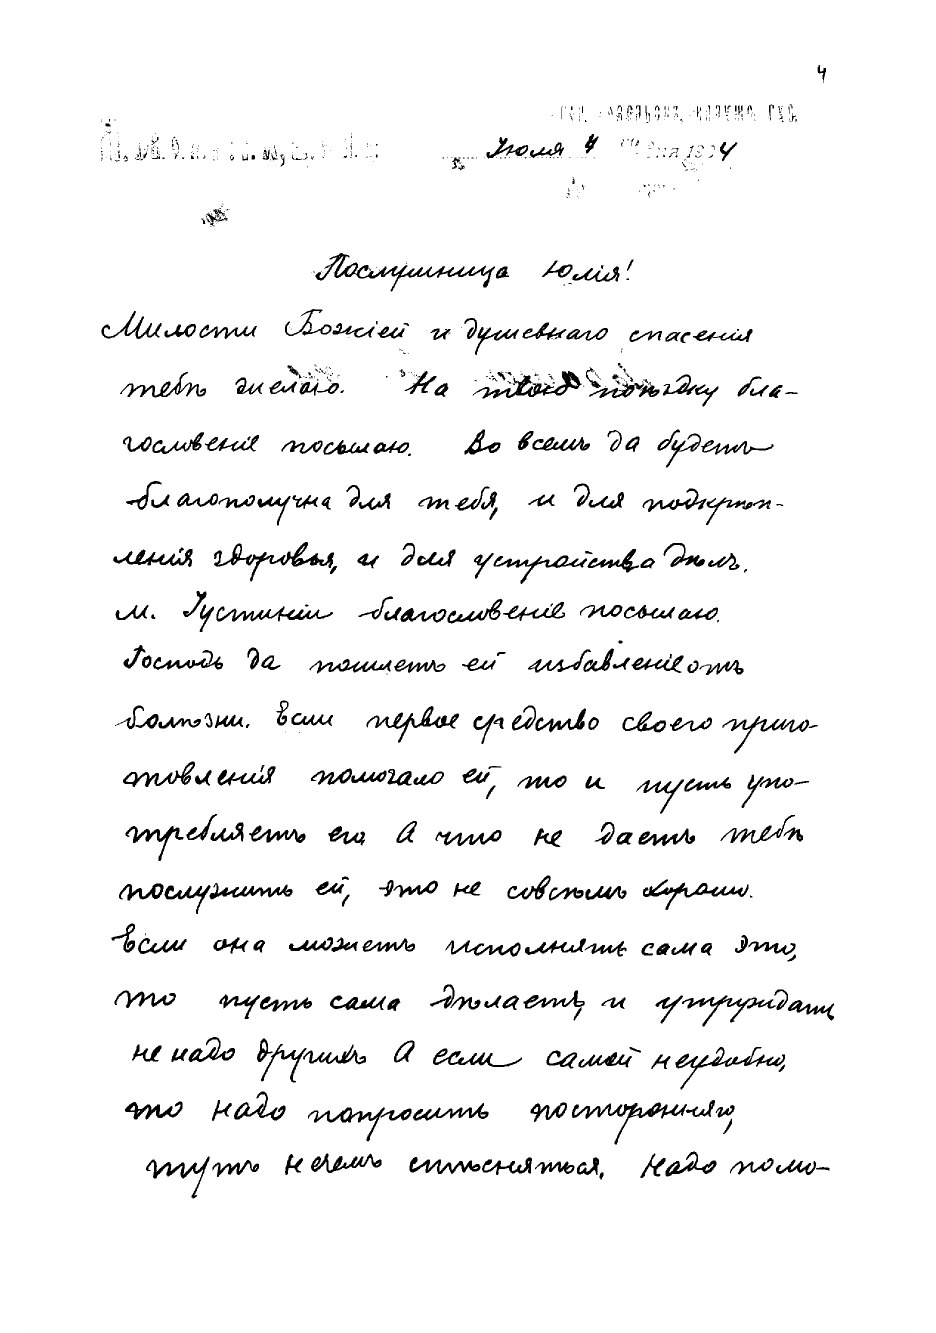 4
Июля 4 дня 1904
Послушница Юлія!
Милости Божіей и душевнаго спасенія
тебѣ желаю. На твою поѣздку бла-
гословеніе посылаю. Во всемъ да будетъ
благополучна для тебя, и для подкрѣп-
ленія здоровья, и для устройства дѣлъ.
М. Іустиніи благословеніе посылаю.
Господь да пошлетъ ей избавленіе отъ
болѣзни. Если первое средство своего приго-
товленія помогало ей, то и пусть упо-
требляетъ его. А что не даетъ тебѣ
послужить ей, это не совсѣмъ хорошо.
Если она можетъ исполнять сама это,
то пусть сама дѣлаетъ, и утруждать
не надо другихъ. А если самой неудобно,
то надо попросить посторонняго,
тутъ нечемъ стѣсняться. Надо помо-